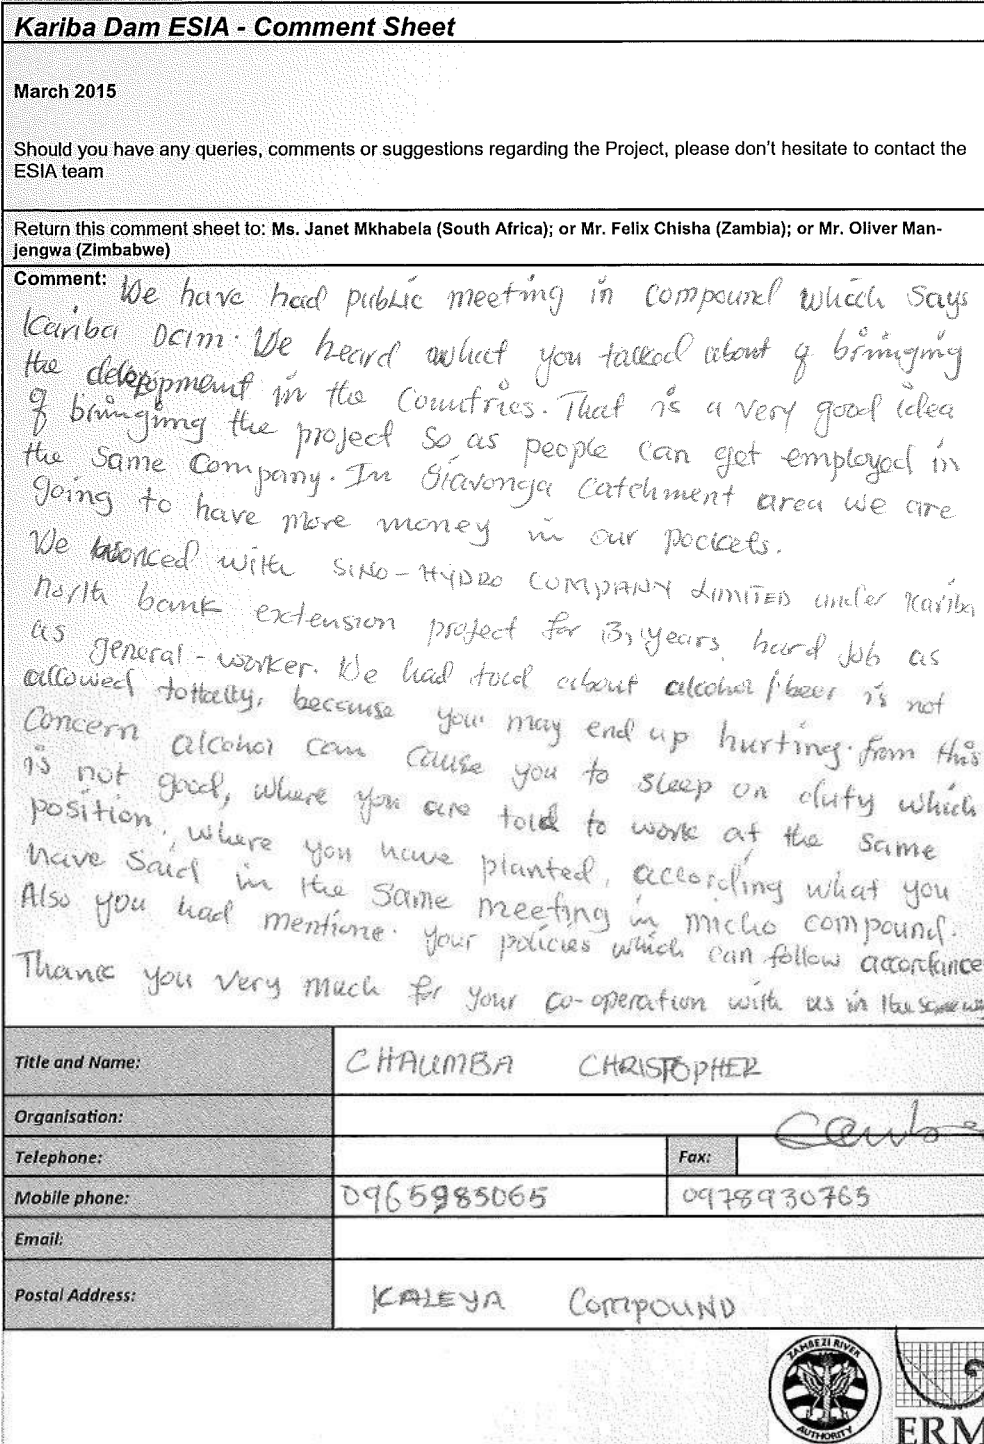 Kariba Dam ESIA - Comment Sheet
March 2015
Should you have any queries, comments or suggestions regarding the Project, please don't hesitate to contact the
ESIA team
Return this comment sheet to: Ms. Janet Mkhabela (South Africa); or Mr. Felix Chisha (Zambia); or Mr. Oliver Man-
jengwa (Zimbabwe)
Comment: We have had public meeting in compound which says
Kariba Dam. We heard what you talked about of bringing
the development in the Countries. That is a very good idea
of bringing the project so as people can get employed in
the same Company. In Siavonga catchment area we are
going to have more money in our pockets.
We worked with SINO-HYDRO COMPANY LIMITED under Kariba
north bank extension project for 3, years, hard job as
as general-worker. We had told about alcohol/beer is not
allowed tottally, because you may end up hurting. from this
concern alcohol can cause you to sleep on duty which
is not good, where you are told to work at the same
position, where you have planted, according what you
have said in the same meeting in micho compound.
Also you had mentione. your policies which can follow accordance
Thank you very much for your co-operation with us in the same
Title and Name: CHAUMBA CHRISTOPHER
Organisation:
Telephone: Fax:
Mobile phone: 0965985065 0978930765
Email:
Postal Address: KALEYA COMPOUND
ZAMBEZI RIVER
AUTHORITY
ERM